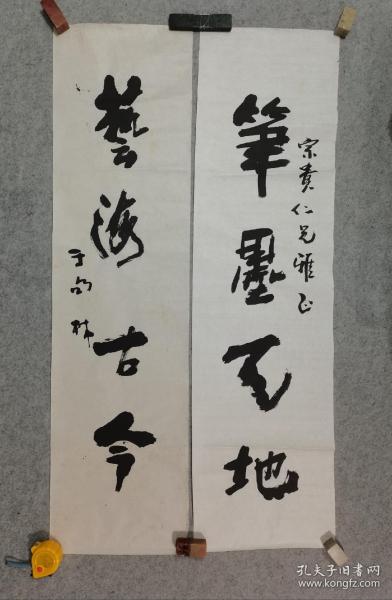 筆墨天地
宗貴仁兄雅正
藝海古今
孔夫子旧书网
www.kongfz.com